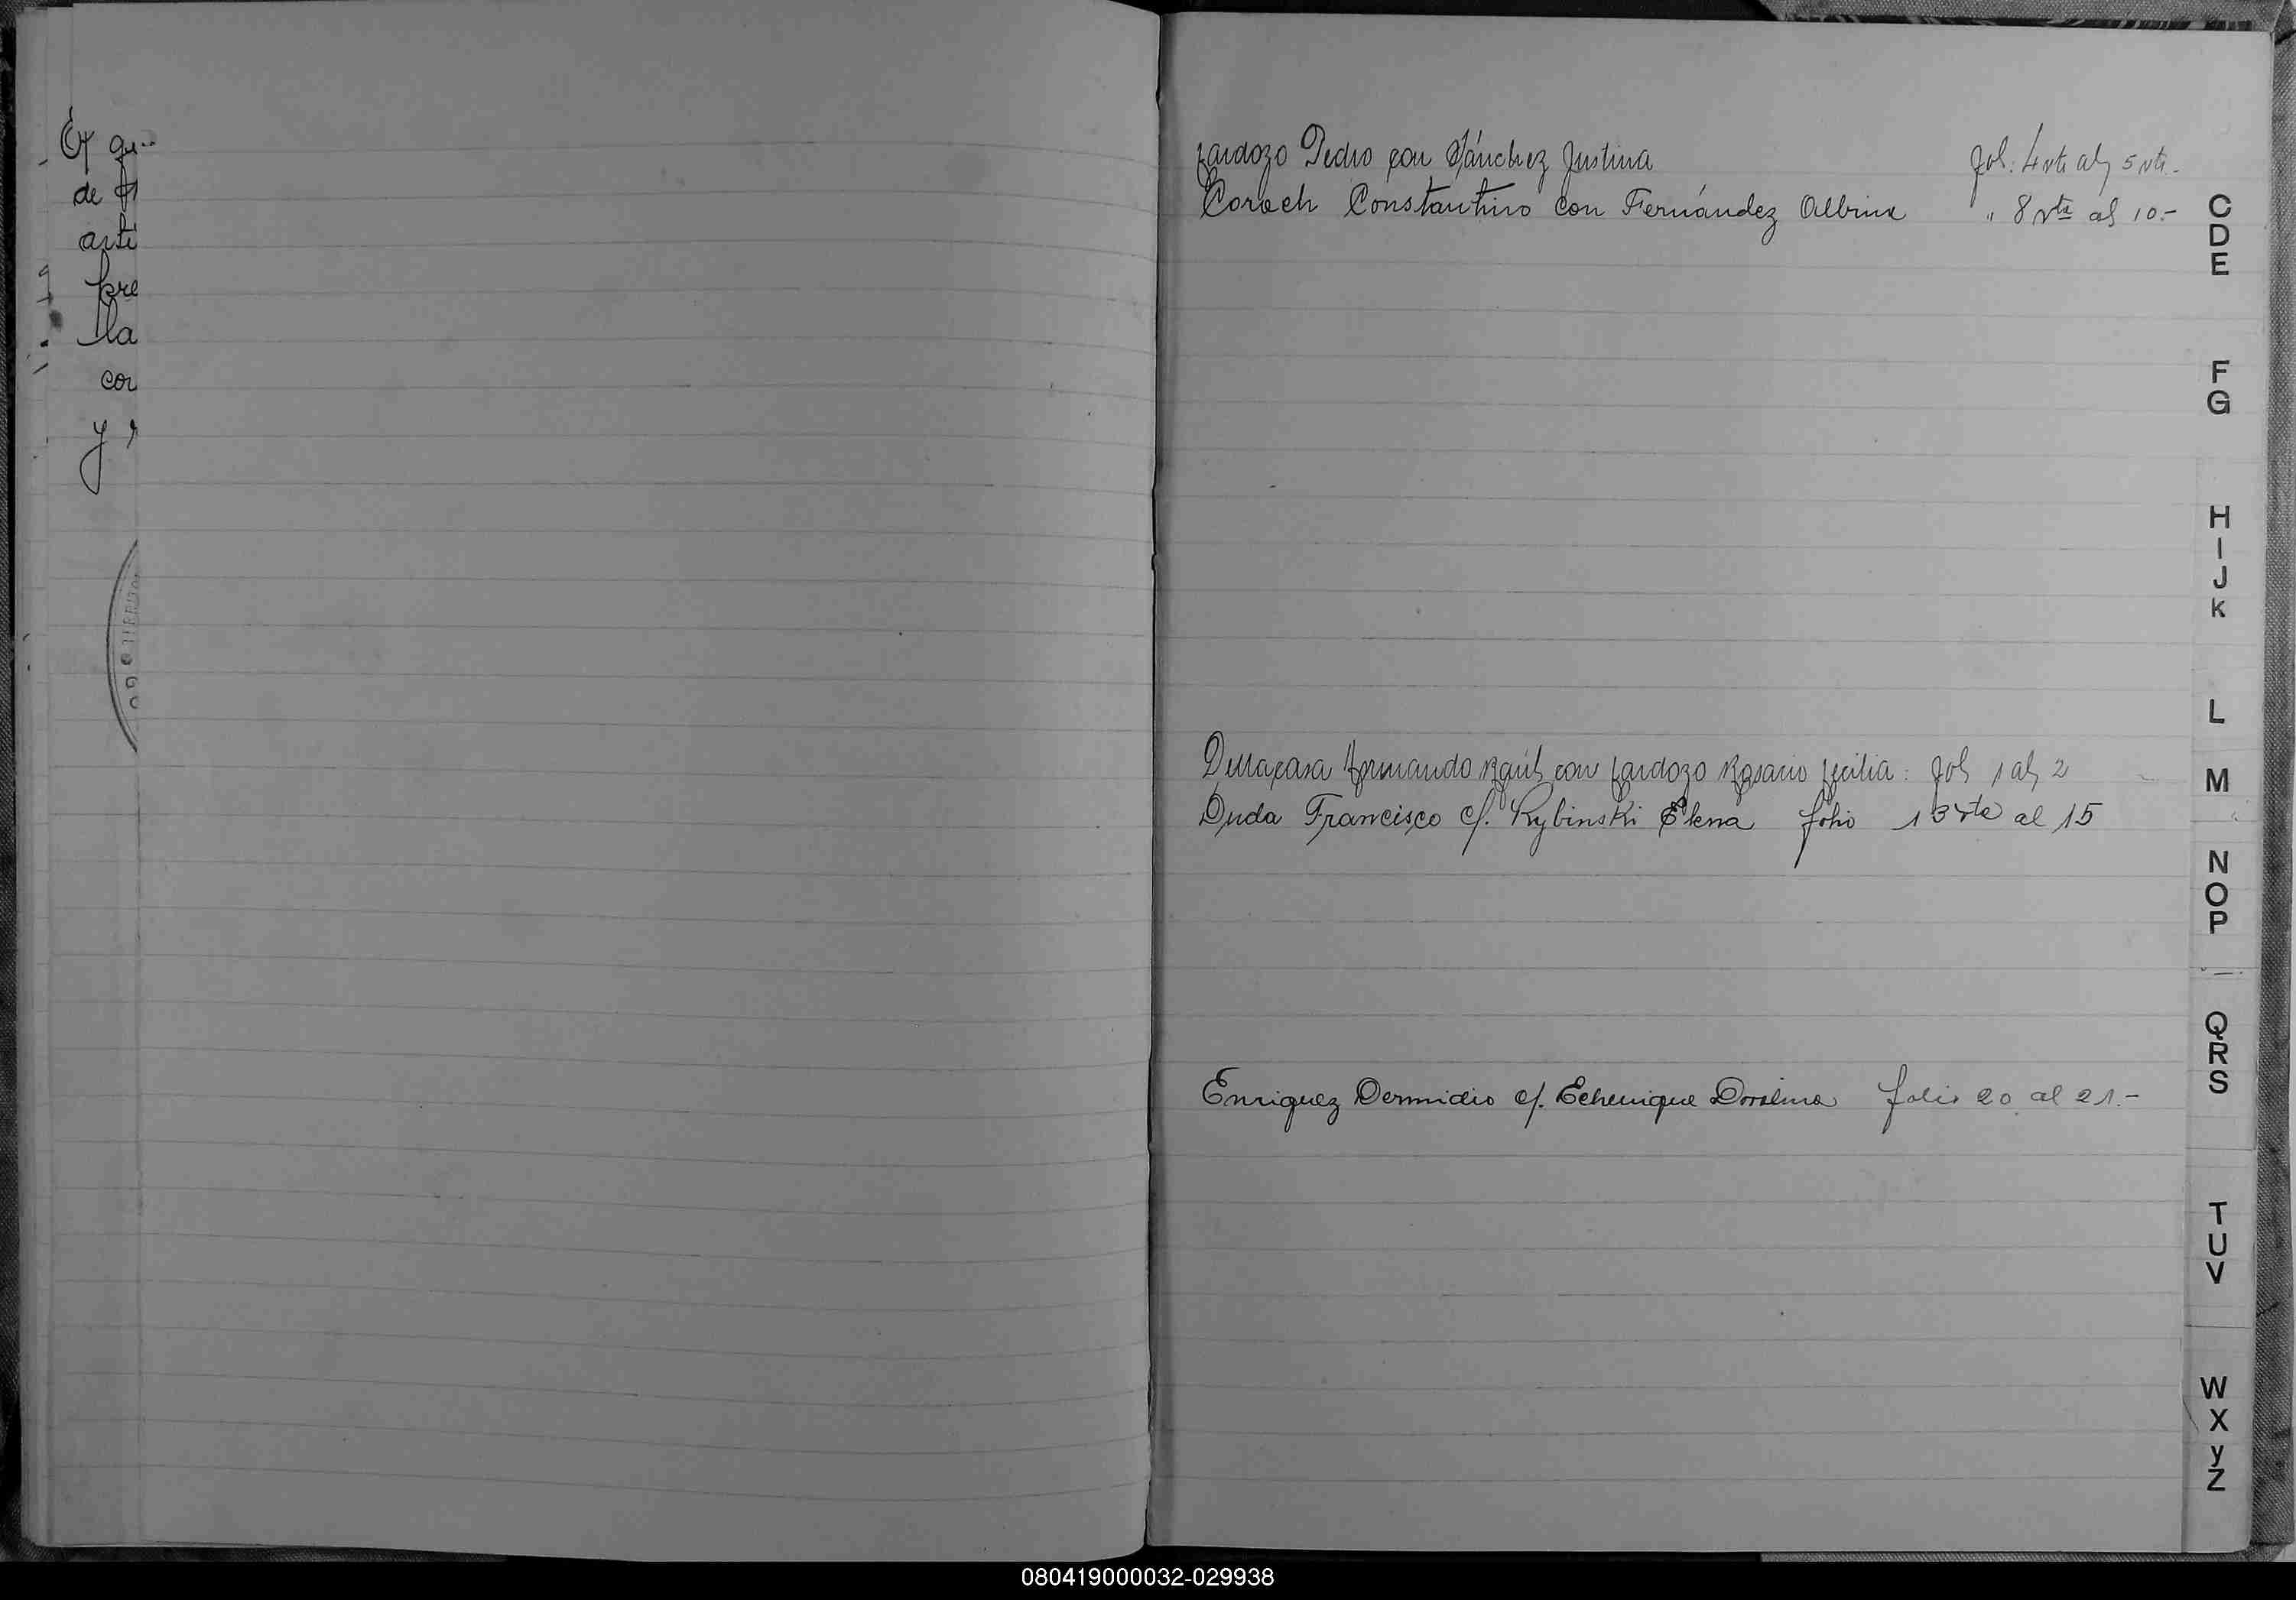 de
arti
pre
la
cor
y
Cardozo Pedro con Sánchez Justina fol. 4 vta al 5 vta.-
Coroch Constantino con Fernández Albina " 8 vta al 10.-
C
D
E
F
G
H
I
J
K
L
Dellacasa Armando Raúl con Cardozo Rosario Cecilia: fol 1 al 2
M
Duda Francisco c/. Rybinski Elena folio 13 vta al 15
N
O
P
Q
R
S
Enriquez Dermidio c/. Echenique Doralina folio 20 al 21.-
T
U
V
W
X
y
Z
080419000032-029938